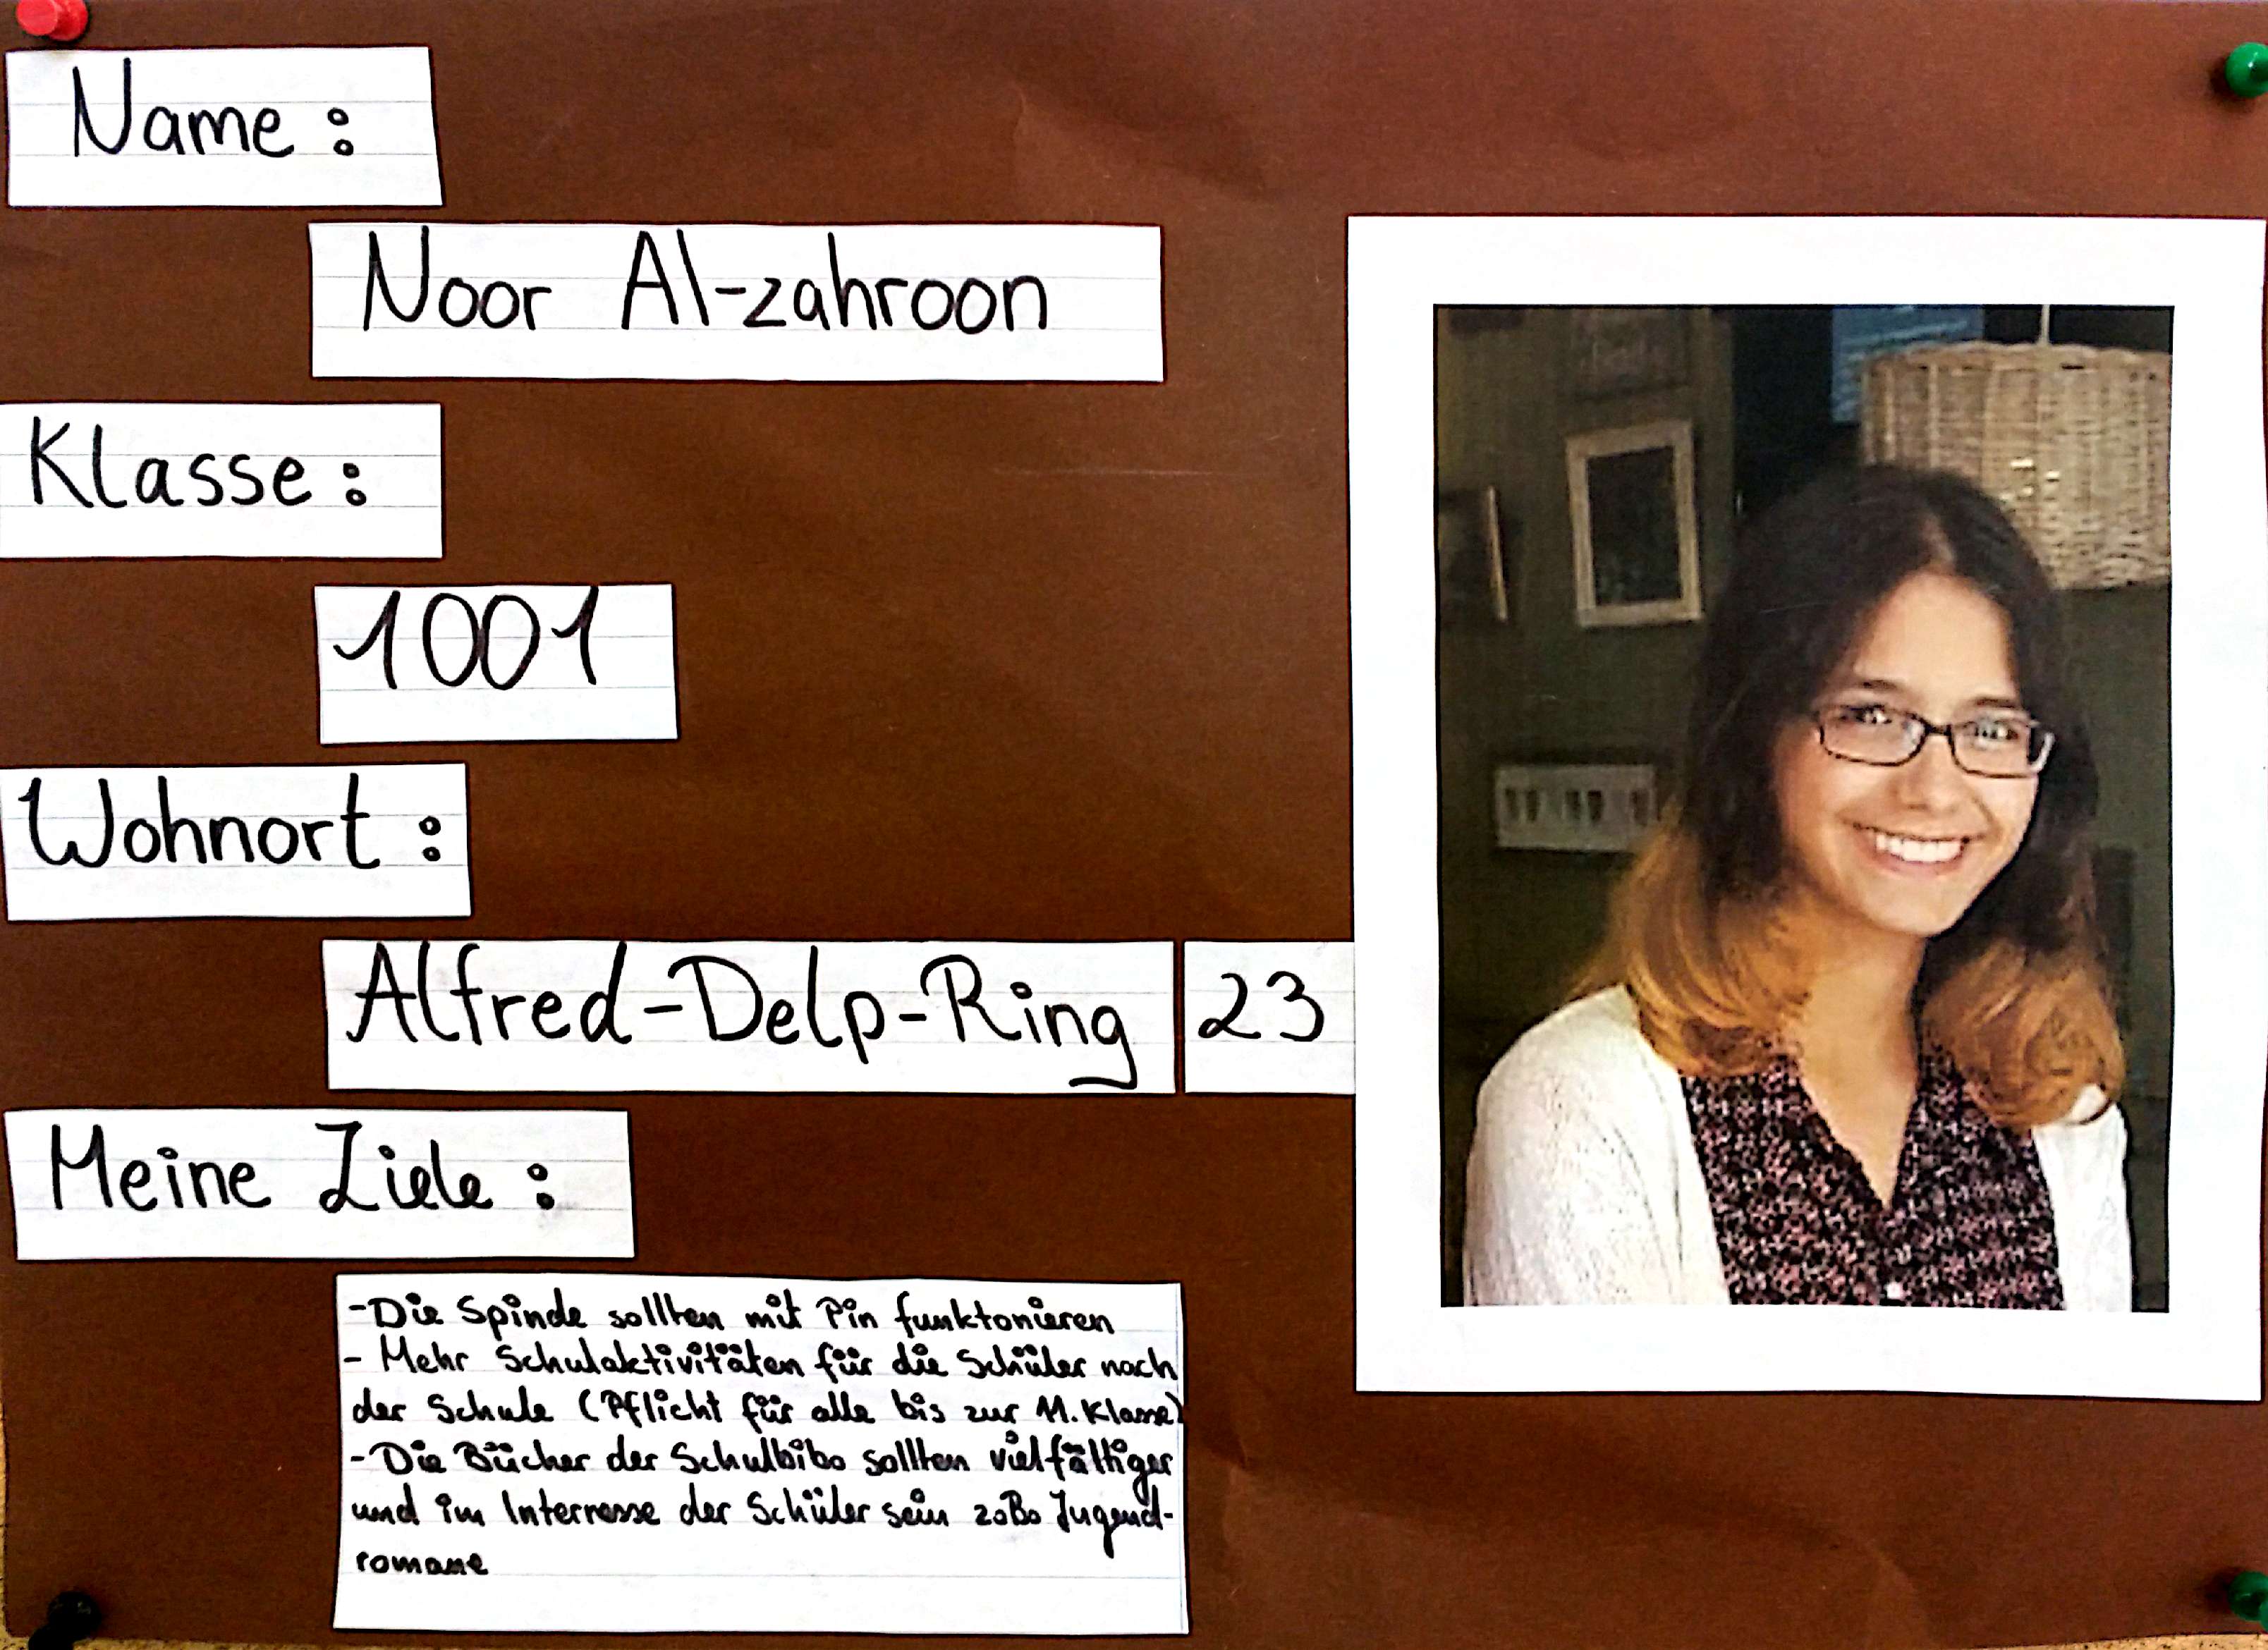 Name :
Noor Al-zahroon
Klasse :
1001
Wohnort :
Alfred-Delp-Ring 23
Meine Ziele :
-Die Spinde sollten mit Pin funktonieren
- Mehr Schulaktivitäten für die Schüler nach
der Schule (Pflicht für alle bis zur 11. Klasse)
- Die Bücher der Schulbibo sollten vielfältiger
und im Interresse der Schüler sein z.B. Jugend-
romane